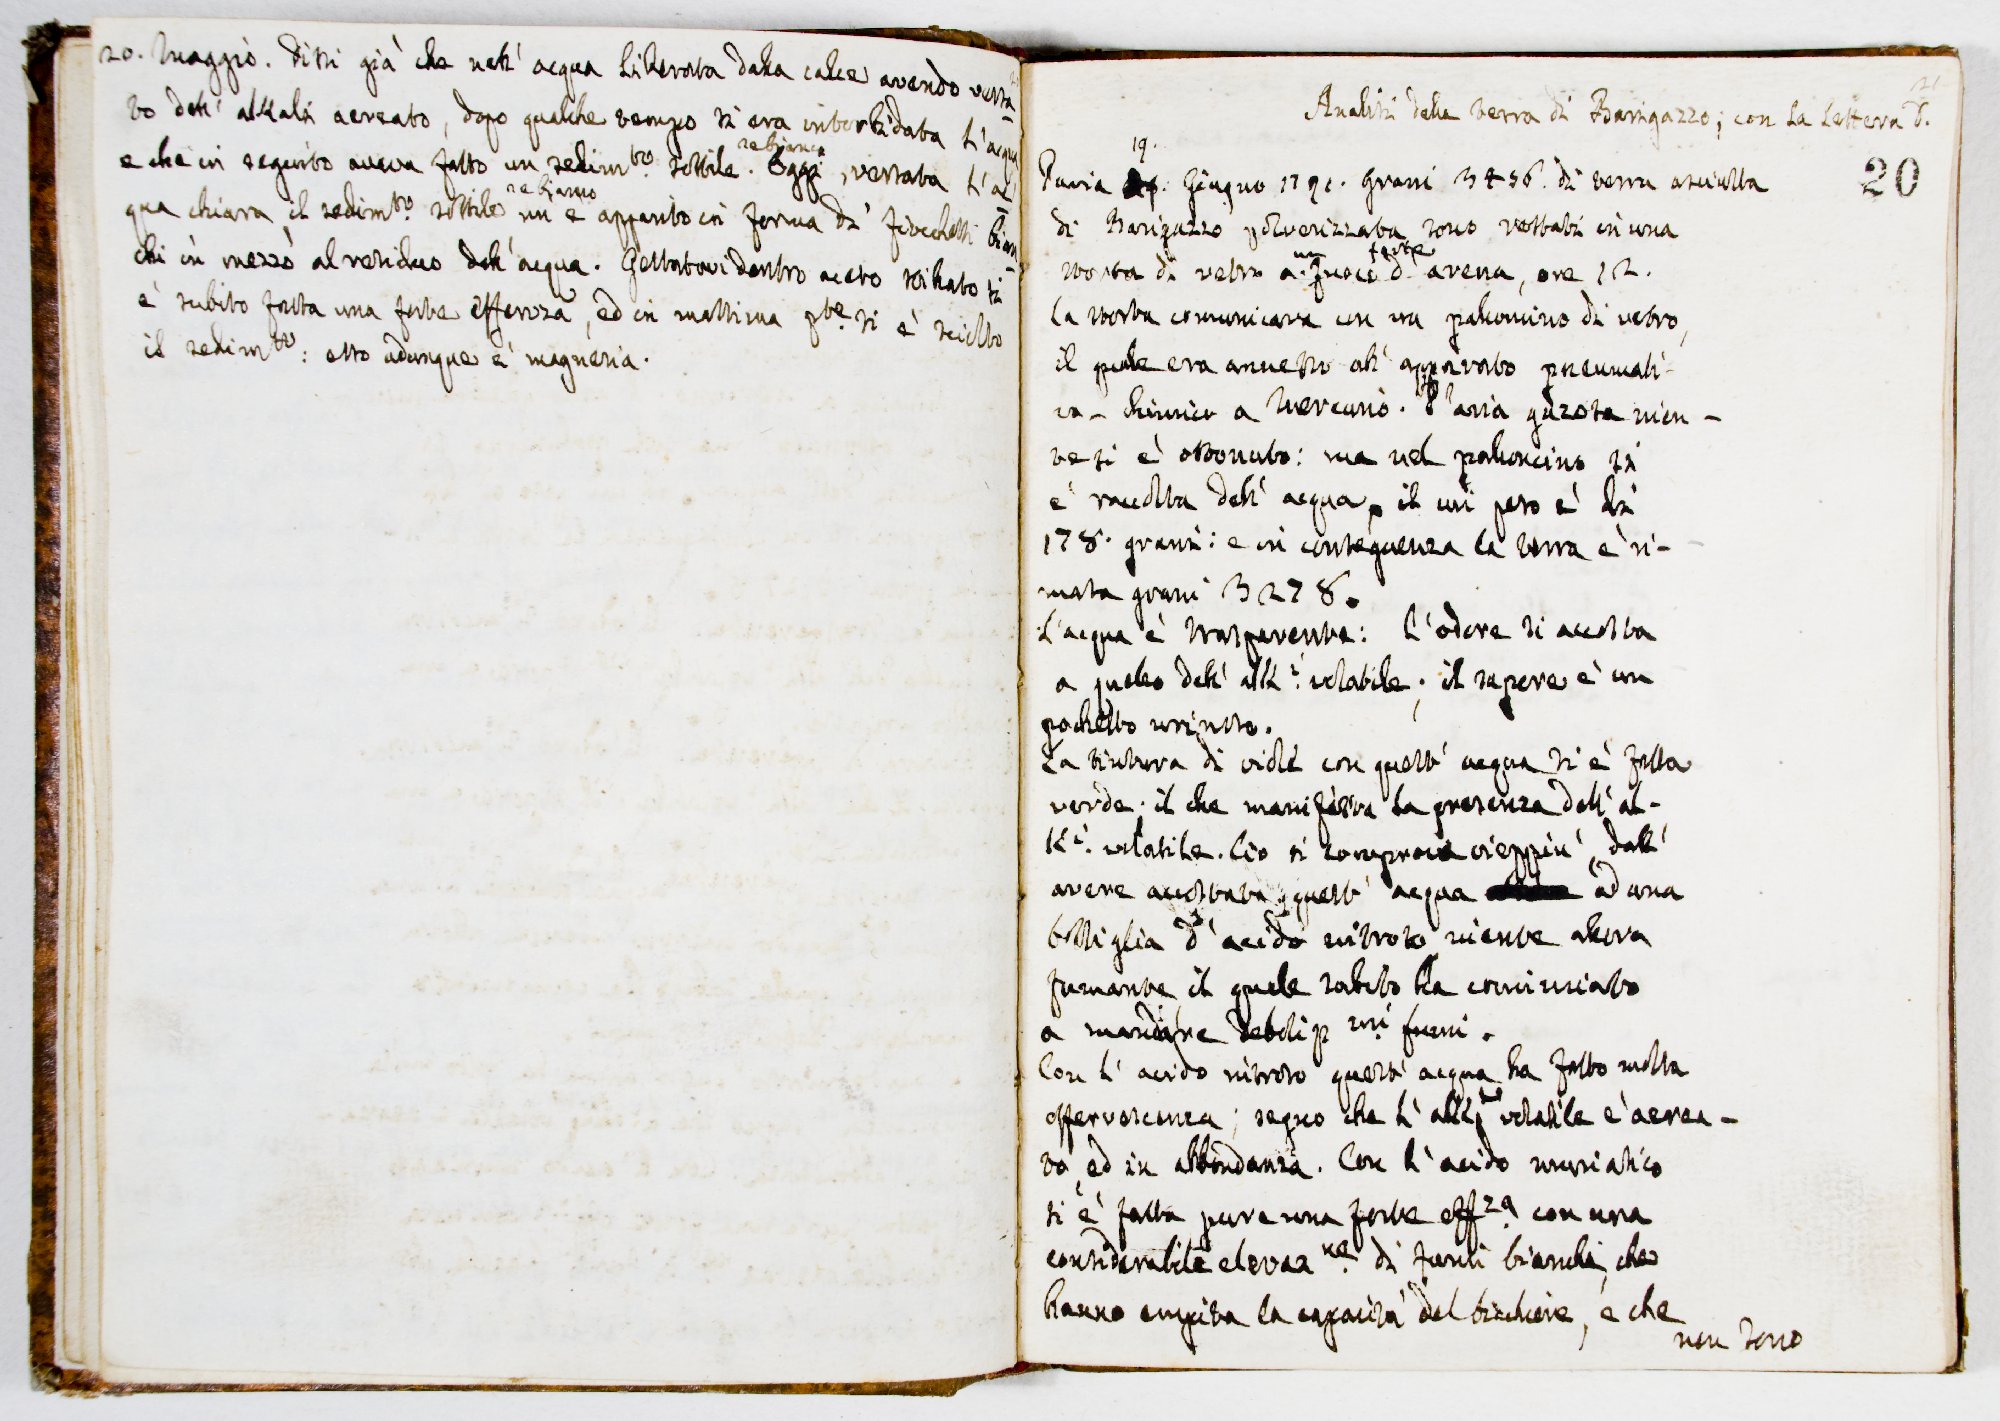 20. Maggio. Dissi già che nell' acqua liberata dalla calce avendo versa-
to dell' alkali aereato, dopo qualche tempo si era intorbidata l'acqua
e che in seguito aveva fatto un sedim.to sottile. Oggi, versata l'ac-
se bianco
qua chiara, il sedim.to sottile mi è apparito in forma di fiocchetti bian-
se bianco
chi in mezzo al residuo dell' acqua. Gettatovi dentro aceto stillato si
è subito fatta una forte efferv.za, ed in massima p.te si è sciolto
il sedim.to: esso adunque è magnesia.
21
Analisi della terra di Barigazzo; con la lettera D.
20
19.
Pavia Giugno 1791. Grani 3456. di terra asciutta
di Barigazzo polverizzata sono restati in una
storta di vetro a un fuoco forte d' arena, ore 12.
La storta comunicava con un palloncino di vetro,
il quale era annesso all' apparato pneumati-
co-chimico a Mercurio. D'aria gazosa nien-
te si è ottenuto: ma nel palloncino si
è raccolta dell' acqua, il cui peso è di
178. grani: e in conseguenza la terra è ri-
masta grani 3278.
L'acqua è trasparente: l'odore si accosta
a quello dell' alk.i volatile; il sapore è un
pochetto urinoso.
La tintura di viole con quest' acqua si è fatta
verde; il che manifesta la presenza dell' al-
k.i volatile. Ciò si comprova vieppiù dall'
avere accostata quest' acqua ad una
bottiglia d' acido nitroso niente allora
fumante, il quale subito ha cominciato
a mandare deboliss.mi fumi.
Con l' acido nitroso quest' acqua ha fatto molta
effervescenza; segno che l' alk.i volatile è aerea-
to, ed in abbondanza. Con l' acido muriatico
si è fatta pure una forte eff.za con una
considerabile elevaz.ne di fumi bianchi, che
hanno empita la capacità del bicchiere, e che
non sono